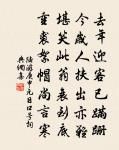 去年迎客已蹣跚
今歲人扶出亦難
堪笑此翁衰到底
重裘絮帽尚言寒
陸游庚申元日口號詞
典網集